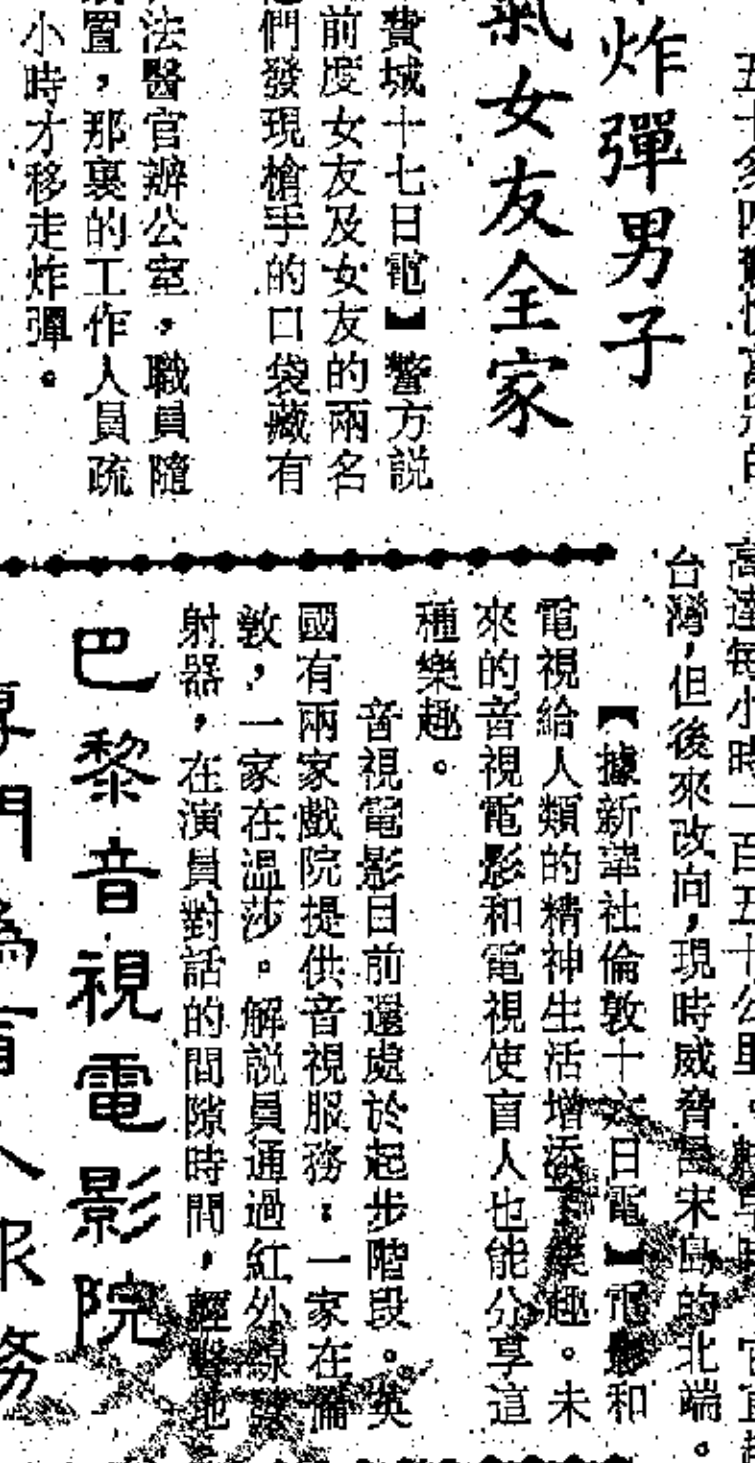 炸彈男子
氣女友全家
費城十七日電】警方説
前度女友及女友的兩名
們發現槍手的口袋藏有
法醫官辦公室，職員隨
置，那裏的工作人員疏
小時才移走炸彈。
高達每小時一百五十公里。
台灣，但後來改向，現時威脅呂宋島的北端。
【據新華社倫敦十六日電】電影和
電視給人類的精神生活增添了樂趣。未
來的音視電影和電視使盲人也能分享這
種樂趣。
音視電影目前還處於起步階段。英
國有兩家戲院提供音視服務：一家在倫
敦，一家在溫莎。解説員通過紅外線發
射器，在演員對話的間隙時間，輕聲地
巴黎音視電影院
專門為盲人服務